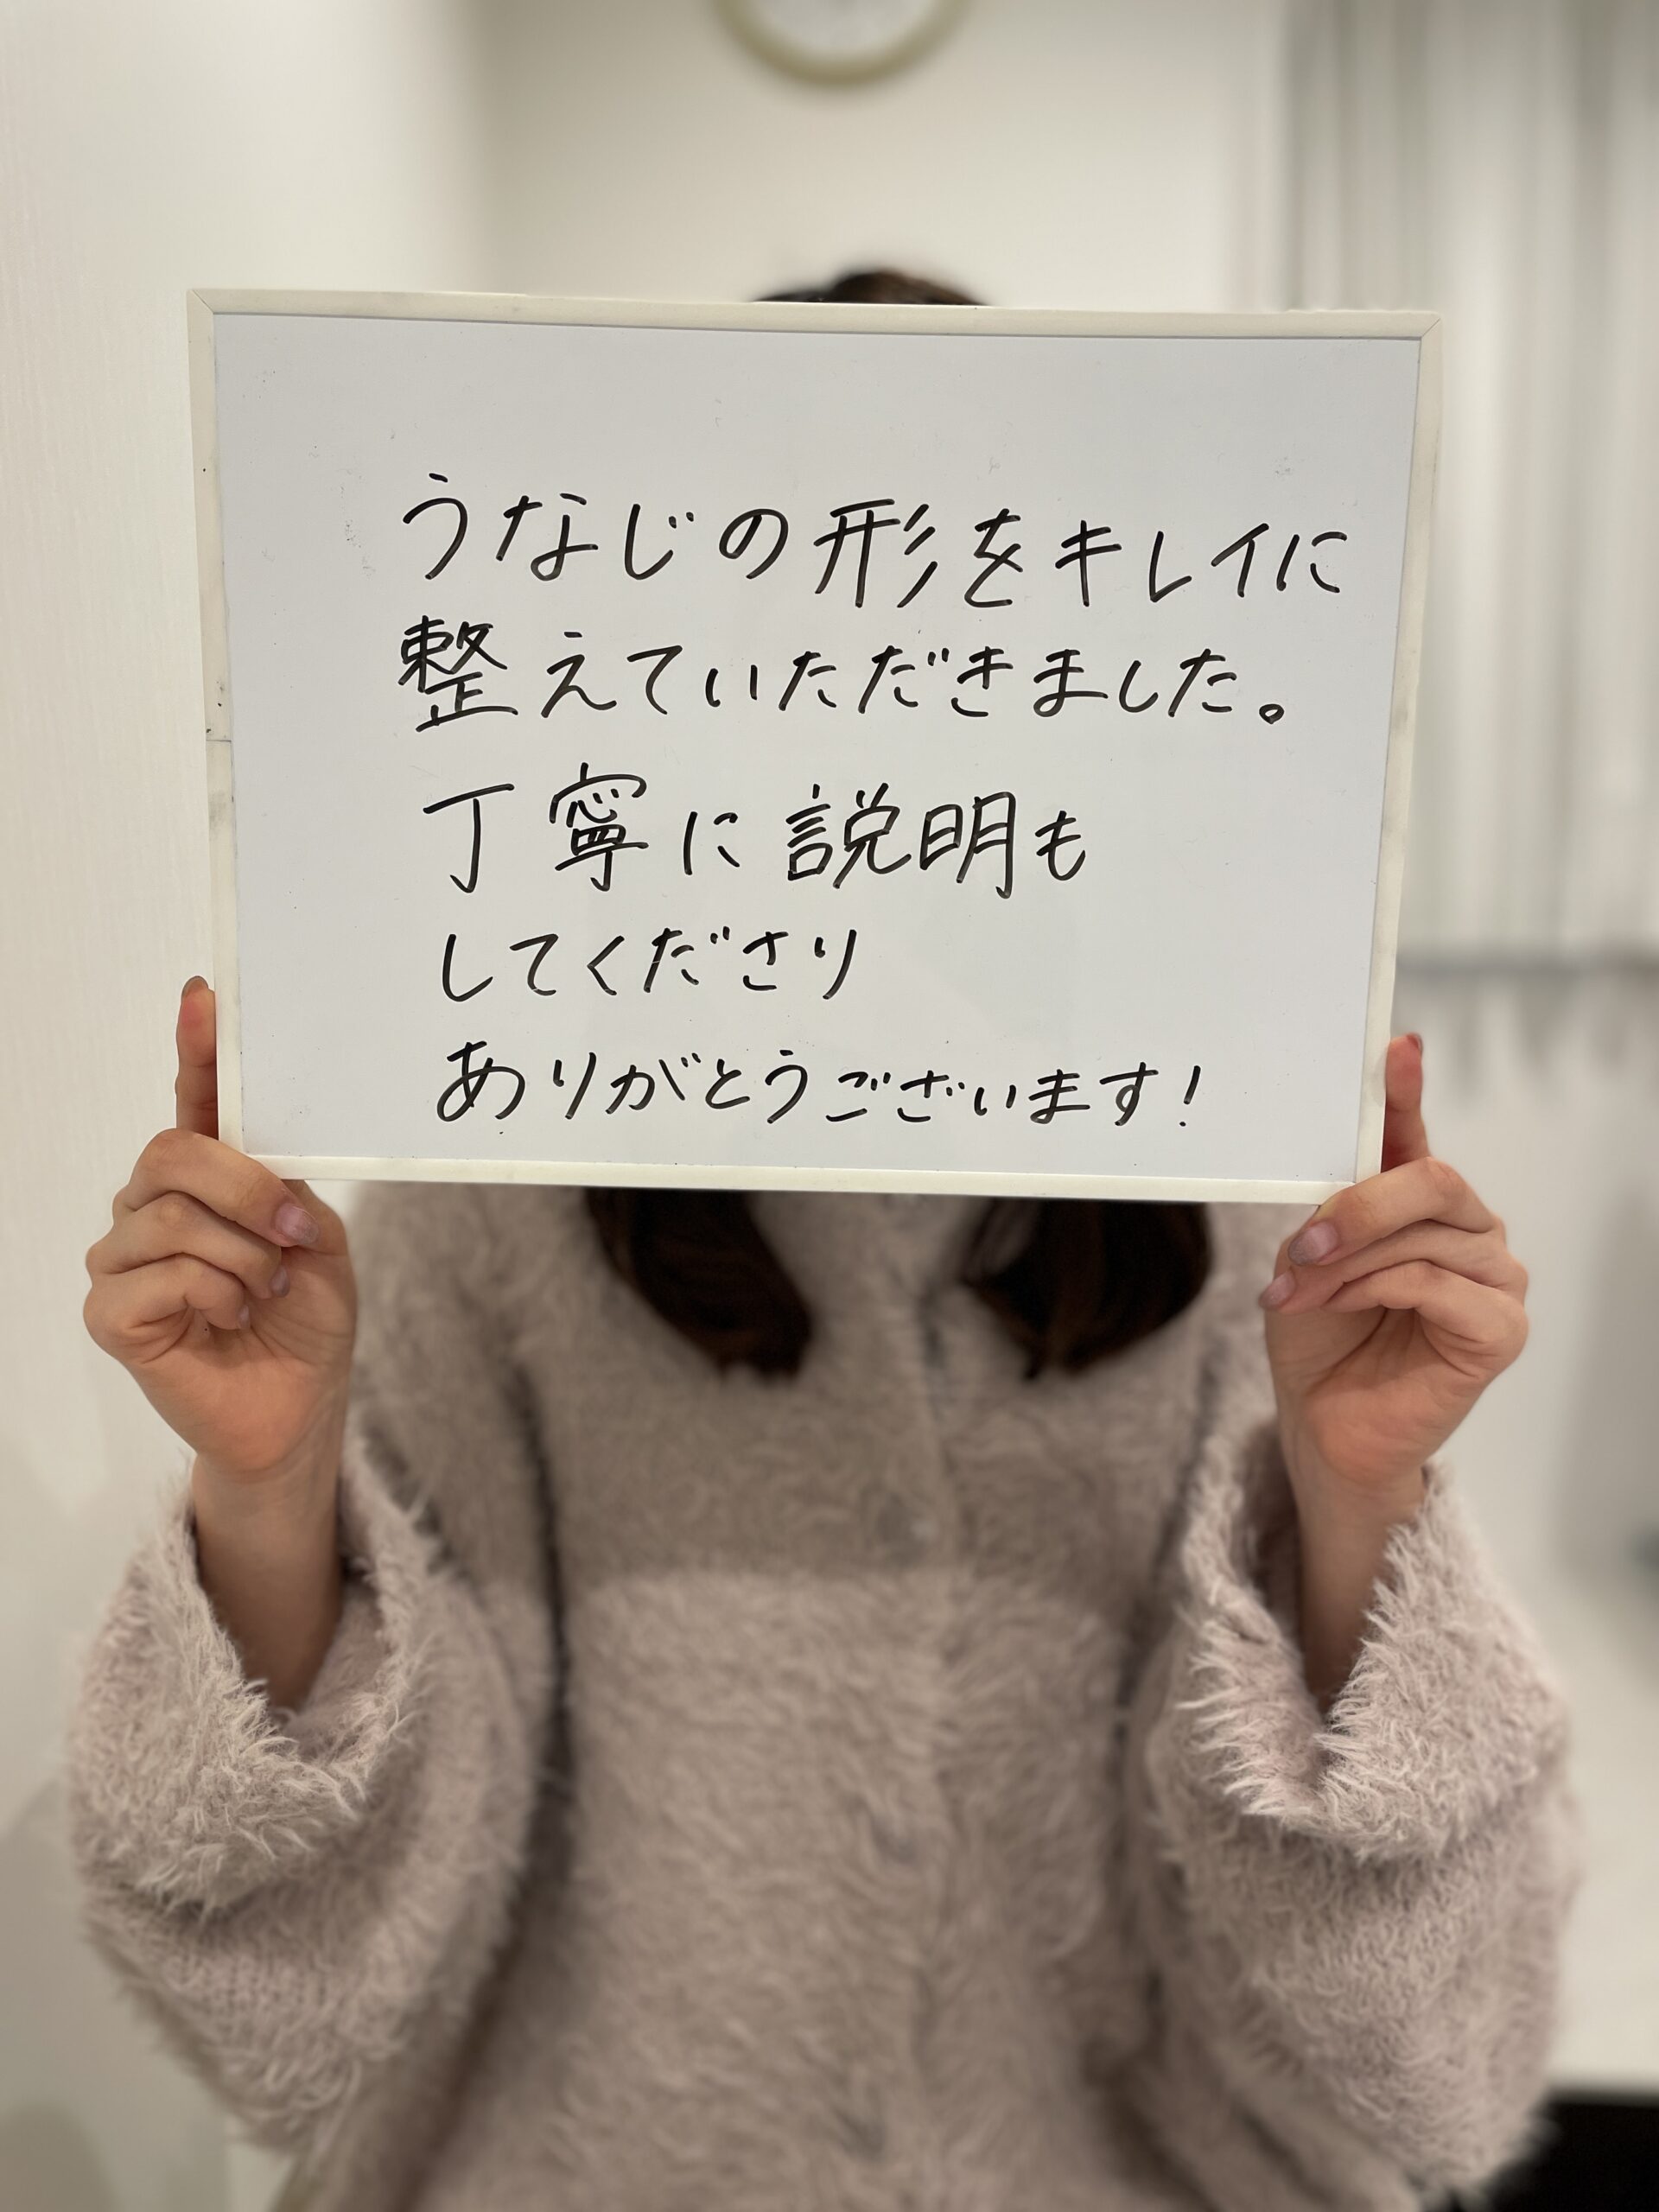 うなじの形をキレイに
整えていただきました。
丁寧に説明も
してくださり
ありがとうございます!